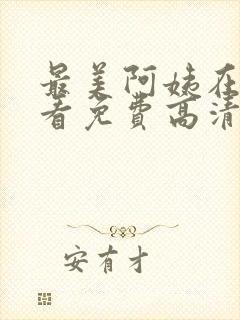 最美阿姨在
看免费高清
安有才